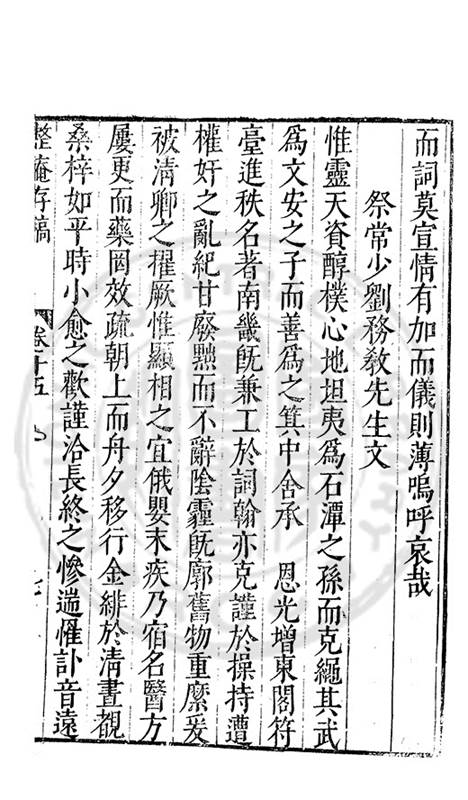 而詞莫宣情有加而儀則薄嗚呼哀哉
祭常少劉務敎先生文
惟靈天資醇樸心地坦夷爲石潭之孫而克繩其武
爲文安之子而善爲之箕中舍承 恩光增東閣符
臺進秩名著南畿旣兼工於詞翰亦克謹於操持遭
權奸之亂紀甘廢黜而不辭陰霾旣廓舊物重縻爰
被清卿之擢厥惟顯相之宜俄嬰末疾乃宿名醫方
屢更而藥罔效疏朝上而舟夕移行金緋於淸晝覩
桑梓如平時小愈之歡謹洽長終之慘遄罹訃音遠
整庵存稿 卷十五